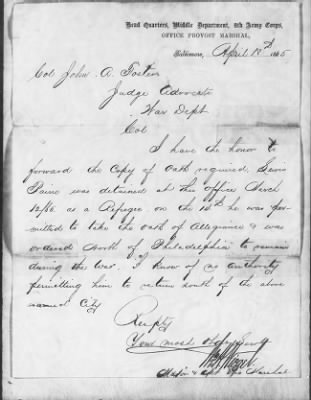 Head Quarters, Middle Department, 8th Army Corps,
OFFICE PROVOST MARSHAL,
Baltimore, April 18th 1865
Col John A. Foster
Judge Advocate
War Dept
Col
I have the honor to
forward the Copy of Oath required, Lewis
Paine was detained at this office March
12/65 as a Refugee on the 14th he was per-
mitted to take the oath of Allegiance & was
ordered North of Philadelphia to remain
during the War. I know of no authority
permitting him to return south of the above
named City
Respty
Your most Obdt Servt
Major &
Marshal